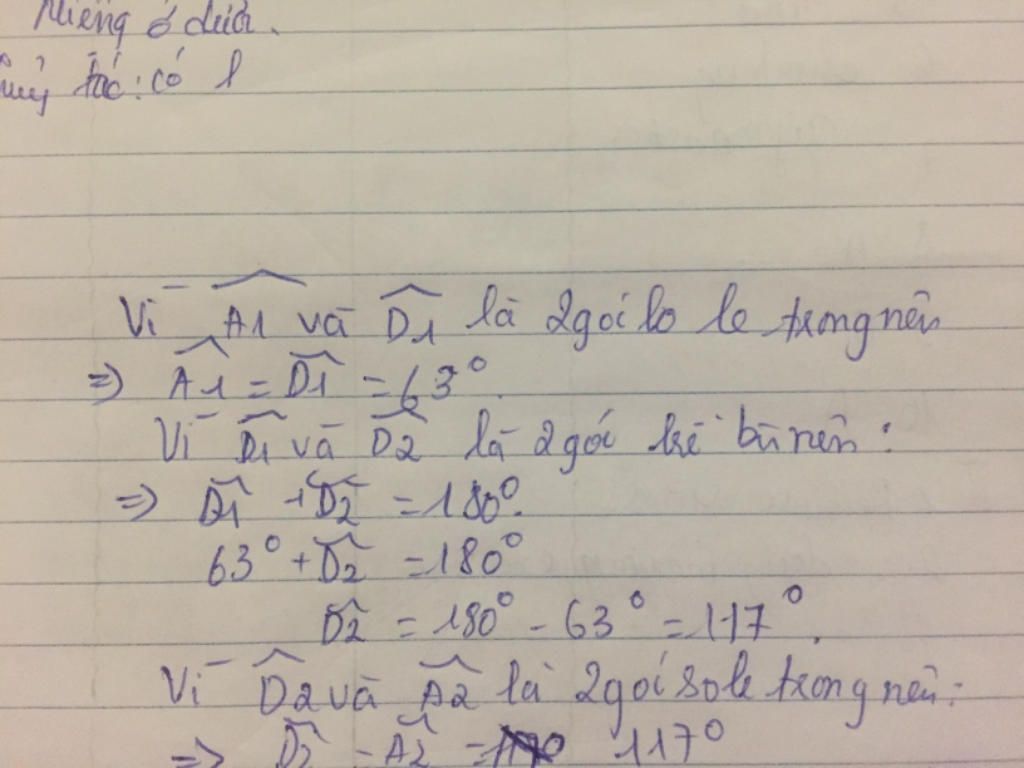 Miệng ở dưới.
tắc: có l
Vì Â1 và D̂1 là 2 gói lo le trong nên
=> Â1 = D̂1 = 63°.
Vì D̂1 và D̂2 là 2 gói kề bù nên:
=> D̂1 + D̂2 = 180°.
63° + D̂2 = 180°
D̂2 = 180° - 63° = 117°.
Vì D̂2 và Â2 là 2 gói so le trong nên:
=> D̂2 - Â2 = 117°